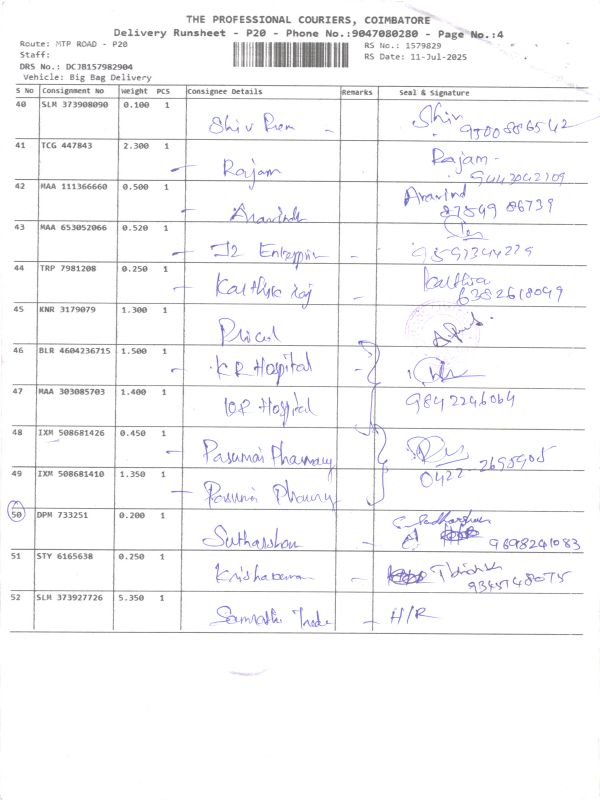 THE PROFESSIONAL COURIERS, COIMBATORE
Delivery Runsheet - P20 - Phone No.:9047080280 - Page No.:4
Route: MTP ROAD - P20
RS No.: 1579829
Staff:
RS Date: 11-Jul-2025
DRS No.: DCJB157982904
Vehicle: Big Bag Delivery
S No Consignment No Weight PCS Consignee Details Remarks Seal & Signature
40 SLM 373908090 0.100 1 Shiv Prem - Shiv
9500886542
41 TCG 447843 2.300 1 Rajam Rajam -
9443042109
42 MAA 111366660 0.500 1 Aravindh Aravind
87549 86739
43 MAA 653052066 0.520 1 J2 -
44 TRP 7981208 0.250 1 Karthik raj -
6382618049
45 KNR 3179079 1.300 1
46 BLR 4604236715 1.500 1 KR Hospital -
47 MAA 303085703 1.400 1 Hospital 9842246064
48 IXM 508681426 0.450 1 Pasumai Pharmacy -
0422-2695905
49 IXM 508681410 1.350 1 Pasumai Pharmacy
50 DPM 733251 0.200 1 Sutharshan -
9698241083
51 STY 6165638 0.250 1 -
9345748075
52 SLM 373927726 5.350 1 Trade - H/R